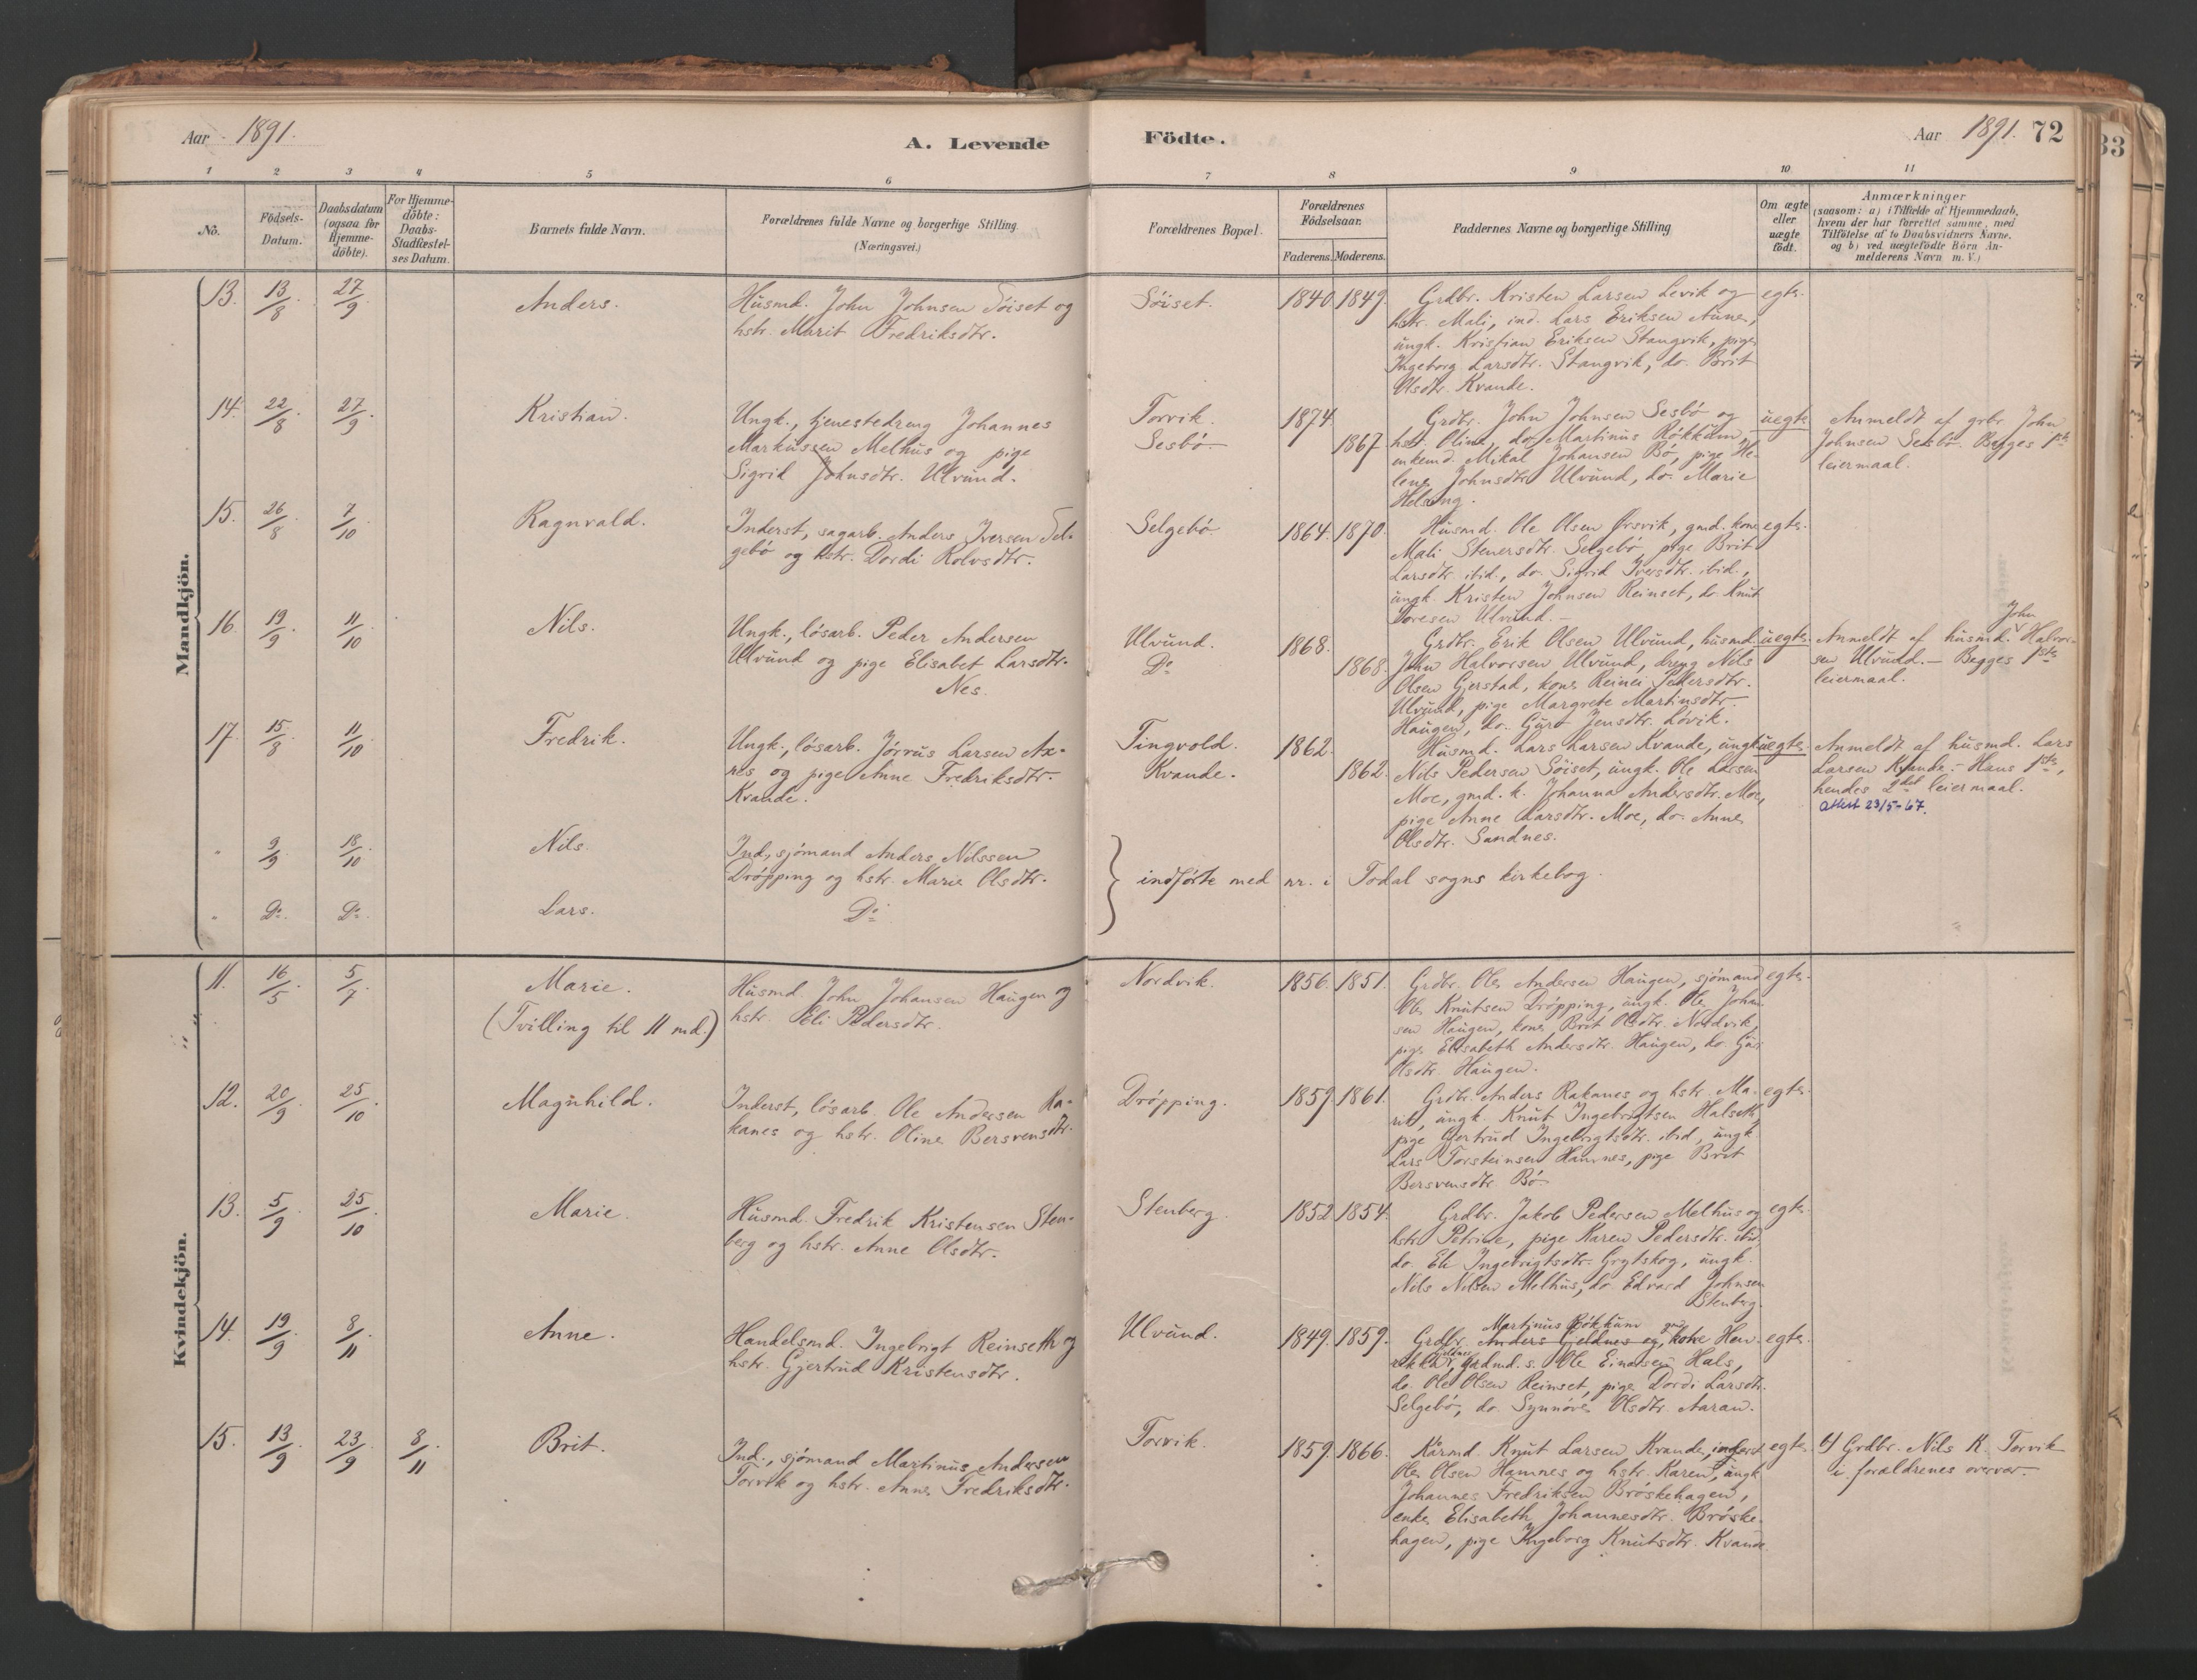 Aar 1891.
A. Levende Födte.
Aar 1891. 72
33
1 2 3 4 5 6 7 8 9 10 11
No.
Födsels-Datum.
Daabsdatum (ogsaa for Hjemmedöbte).
For Hjemmedöbte: Daabs-Stadfæstelses Datum.
Barnets fulde Navn.
Forældrenes fulde Navne og borgerlige Stilling (Næringsvei.)
Forældrenes Bopæl.
Forældrenes Födselsaar.
Faderens. Moderens.
Faddernes Navne og borgerlige Stilling
Om ægte eller uægte födt.
Anmærkninger
(saasom: a) i Tilfælde af Hjemmedaab,
hvem der har forrettet samme, med
Tilföielse af to Daabsvidners Navne,
og b) ved uægtefödte Börn An-
melderens Navn m. V.)
Mandkjön.
13. 13/8 27/9 Anders.
Husmd. John Johnsen Söiset og
hstr. Marit Fredriksdtr.
Söiset. 1840. 1849.
Grdbr. Kristen Larsen Levik og
hstr. Mali, ind. Lars Eriksen Aune,
ungk. Kristian Eriksen Stangvik, pige
Ingeborg Larsdtr. Stangvik, do. Brit
Olsdtr. Kvande.
egte.
14. 22/8 27/9 Kristian.
Ungk., tjenestedreng Johannes
Markussen Melhus og pige
Sigrid Johnsdtr. Ulvund.
Torvik. 1874.
Sesbö 1867
Grdbr. John Johnsen Sesbö og
hstr. Oline, do. Martinus Rökkum,
enkemd. Mikal Johansen Bö, pige He-
lene Johnsdtr. Ulvund, do. Marie
Helseng.
uegte.
Anmeldt af grbr. John
Johnsen Sesbö. Begges 1ste
leiermaal.
15. 26/8 7/10 Ragnvald.
Inderst, sagarb. Anders Iversen Sel-
gebö og hstr. Dordi Rolvsdtr.
Selgebö 1864. 1870.
Husmd. Ole Olsen Örsvik, gmd. kone
Mali Steuersdtr. Selgebö, pige Brit
Larsdtr. ibid., do. Sigrid Iversdtr. ibid.,
ungk. Kristen Johnsen Reinset, do. Knut
Toresen Ulvund.
egte.
16. 19/9 11/10 Nils.
Ungk., lösarb. Peder Andersen
Ulvund og pige Elisabet Larsdtr.
Nes.
Ulvund. 1868.
Do 1868.
Grdbr. Erik Olsen Ulvund, husmd.
John Halvorsen Ulvund, dreng Nils
Olsen Gjerstad, kone Reinei Pedersdtr.
Ulvund, pige Margrete Martinsdtr.
Haugen, do. Guro Jensdtr. Lövik.
uegte.
John
Anmeldt af husmd. Halvor-
sen Ulvund. – Begges 1ste
leiermaal.
17. 15/8 11/10 Fredrik.
Ungk., lösarb. Jörrus Larsen Ax-
nes og pige Anne Fredriksdtr.
Kvande.
Tingvold. 1862.
Kvande. 1862.
Husmd. Lars Larsen Kvande, ungk.
Nils Pedersen Söiset, ungk. Ole Larsen
Moe, gmd. k. Johanna Andersdtr. Moe,
pige Anne Larsdtr. Moe, do. Anne
Olsdtr. Sandnes.
uegte.
Anmeldt af husmd. Lars
Larsen Kvande. – Hans 1ste,
hendes 2det leiermaal.
Attest 23/5-67.
" 9/9 18/10 Nils.
Ind., sjömand Anders Nilssen
Dröpping og hstr. Marie Olsdtr.
indförte med nr. i Todal sogns kirkebog.
" Do. Do. Lars. Do
Kvindekjön.
11. 16/5 5/7 Marie.
(Tvilling til 11 md.)
Husmd. John Johansen Haugen og
hstr. Eli Pedersdtr.
Nordvik. 1856. 1851.
Grdbr. Ole Andersen Haugen, sjömand
Ole Knutsen Dröpping, ungk. Ole Johan-
sen Haugen, kone Brit Olsdtr. Nordvik,
pige Elisabeth Andersdtr. Haugen, do. Guri
Olsdtr. Haugen.
egte.
12. 20/9 25/10 Magnhild.
Inderst, lösarb. Ole Andersen Ra-
kanes og hstr. Oline Bersvensdtr.
Dröpping. 1859. 1861.
Grdbr. Anders Rakanes og hstr. Ma-
rit, ungk. Knut Ingebrigtsen Halseth,
pige Gjertrud Ingebrigtsdtr. ibid, ungk.
Lars Torsteinsen Hamnes, pige Brit
Bersvensdtr. Bö.
egte.
13. 5/9 25/10 Marie.
Husmd. Fredrik Kristensen Sten-
berg og hstr. Anne Olsdtr.
Stenberg. 1852 1854.
Grdbr. Jakob Pedersen Melhus og
hstr. Petrine, pige Karen Pedersdtr. ibid,
do. Eli Ingebrigtsdtr. Grytskog, ungk.
Nils Nilsen Melhus, do. Edvard Johnsen
Stenberg.
egte.
14. 19/9 8/11 Anne.
Handelsmd. Ingebrigt Reinseth og
hstr. Gjertrud Kristensdtr.
Ulvund. 1849. 1859.
Martinus Rökkum gm.
Grdbr. Anders Gjeldnes og, kone Hen-
rikka Gjeldnes, gradmd. s. Ole Einarsen Hals,
do. Ole Olsen Reinset, pige Dordi Larsdtr.
Selgebö, do. Synnöve Olsdtr. Aaran.
egte.
15. 13/9 23/9 8/11 Brit.
Ind., sjömand Martinus Andersen
Torvik og hstr. Anne Fredriksdtr.
Torvik. 1859. 1866.
Kårmd. Knut Larsen Kvande, inderst
Ole Olsen Hamnes og hstr. Karen, ungk.
Johannes Fredriksen Bröskehagen,
enke Elisabeth Johannesdtr. Bröske-
hagen, pige Ingeborg Knutsdtr. Kvande.
egte.
Grdbr. Nils K. Torvik
i forældrenes overvær.